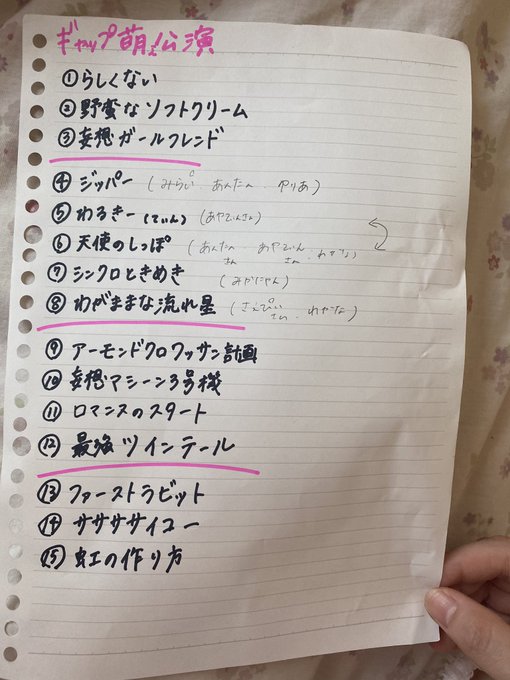 ギャップ萌え公演
①らしくない
②野蛮なソフトクリーム
③妄想ガールフレンド
④ジッパー (みらい。あんたん、ゆりあ)
⑤わるきー(てぃん) (あやてぃんさん)
⑥天使のしっぽ (あんたんさん あやてぃんさん、わかな)
⑦シンクロときめき (みかにゃん)
⑧わがままな流れ星 (さえぴぃさん、れな)
⑨アーモンドクロワッサン計画
⑩妄想マシーン3号機
⑪ロマンスのスタート
⑫最強ツインテール
⑬ファーストラビット
⑭サササササイコー
⑮虹の作り方